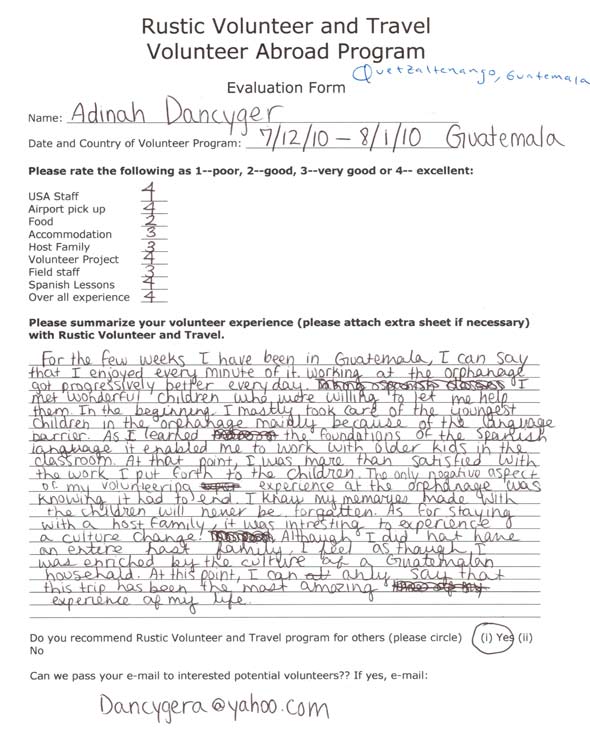 Rustic Volunteer and Travel
Volunteer Abroad Program
Quetzaltenango, Guatemala
Evaluation Form
Name: Adinah Dancyger
Date and Country of Volunteer Program: 7/12/10 – 8/1/10 Guatemala
Please rate the following as 1--poor, 2--good, 3--very good or 4-- excellent:
USA Staff 4
Airport pick up 4
Food 2
Accommodation 3
Host Family 3
Volunteer Project 4
Field staff 3
Spanish Lessons 4
Over all experience 4
Please summarize your volunteer experience (please attach extra sheet if necessary)
with Rustic Volunteer and Travel.
For the few weeks I have been in Guatemala, I can say
that I enjoyed every minute of it. Working at the orphanage
got progressively better every day. I
met wonderful children who were willing to let me help
them. In the beginning I mostly took care of the youngest
children in the orphanage mainly because of the language
barrier. As I learned the foundations of the Spanish
language it enabled me to work with older kids in the
classroom. At that point, I was more than satisfied with
the work I put forth to the children. The only negative aspect
of my volunteering experience at the orphanage was
knowing it had to end. I know my memories made with
the children will never be forgotten. As for staying
with a host family, it was intresting to experience
a culture change. Although I did not have
an entire host family, I feel as though I
was enriched by the culture of a Guatemalan
household. At this point, I can only say that
this trip has been the most amazing
experience of my life.
Do you recommend Rustic Volunteer and Travel program for others (please circle) (i) Yes (ii)
No
Can we pass your e-mail to interested potential volunteers?? If yes, e-mail:
Dancygera@yahoo.com